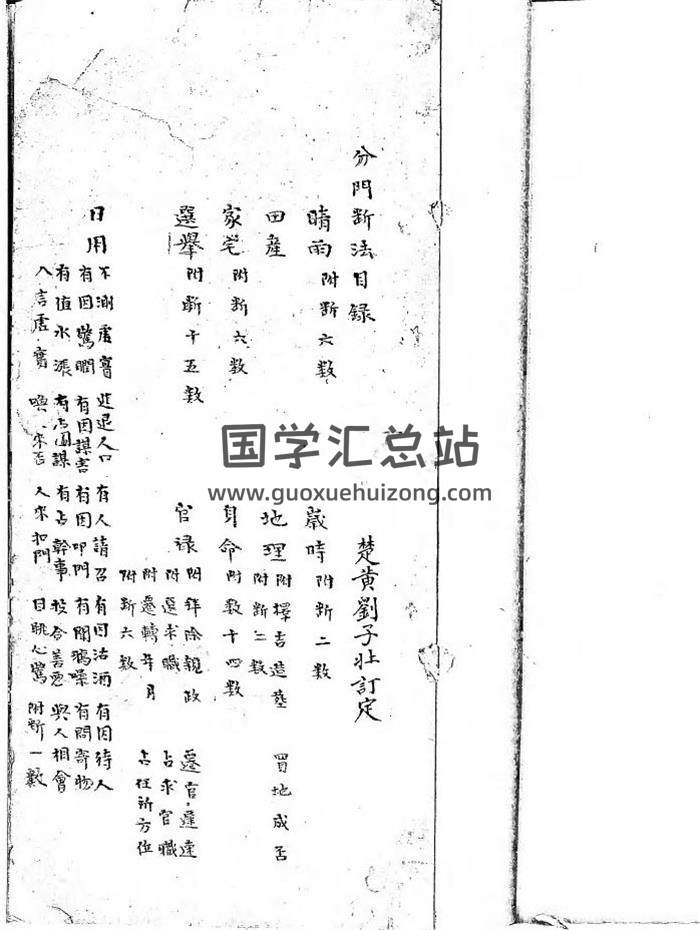 分門斷法目錄
楚黃劉子壯訂定
晴雨 附斷六数
歲時 附斷二数
田産
地理 附擇吉造塟 買地成否
附斷二数
家宅 附斷六数
身命 附数十四数
選舉 附斷十五数
官禄 附拜除親政 遷官遲速
附選求職 占求官職
附遷轉年月 占任所方位
附斷六数
日用
不測虛實 進退人口 有人請召 有因沽酒 有因待人
有因驚聞 有因謀害 有因叩門 有聞鴉噪 有問寄物
有值水漲 有占圖謀 有占幹事 投合善惡 與人相會
人言虛實 喚人來否 人來扣門 目眺心驚 附斷一數
国学汇总站
www.guoxuehuizong.com